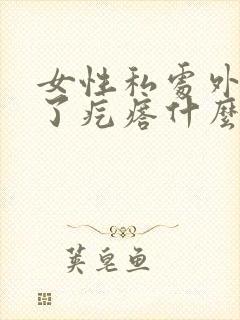 女性私處外
了疙瘩什麼
荚皂鱼